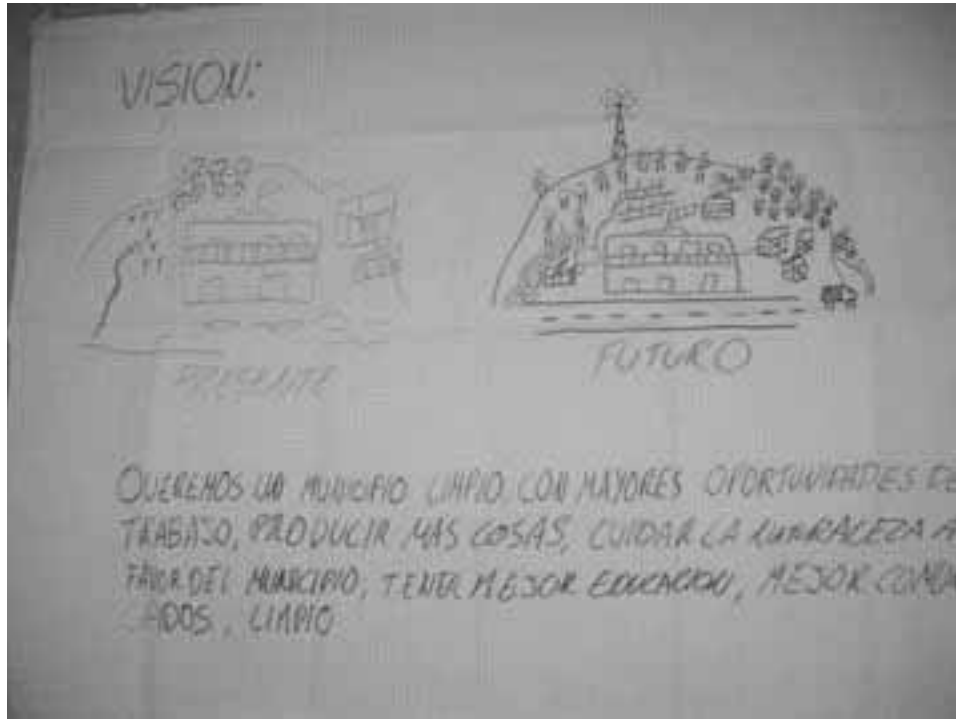 VISION:
PRESENTE
FUTURO
QUEREMOS UN MUNICIPIO LIMPIO CON MAYORES OPORTUNIDADES DE
TRABAJO, PRODUCIR MAS COSAS, CUIDAR LA A
FAVOR DEL MUNICIPIO, TENER MEJOR EDUCACION, MEJOR
LIMPIO